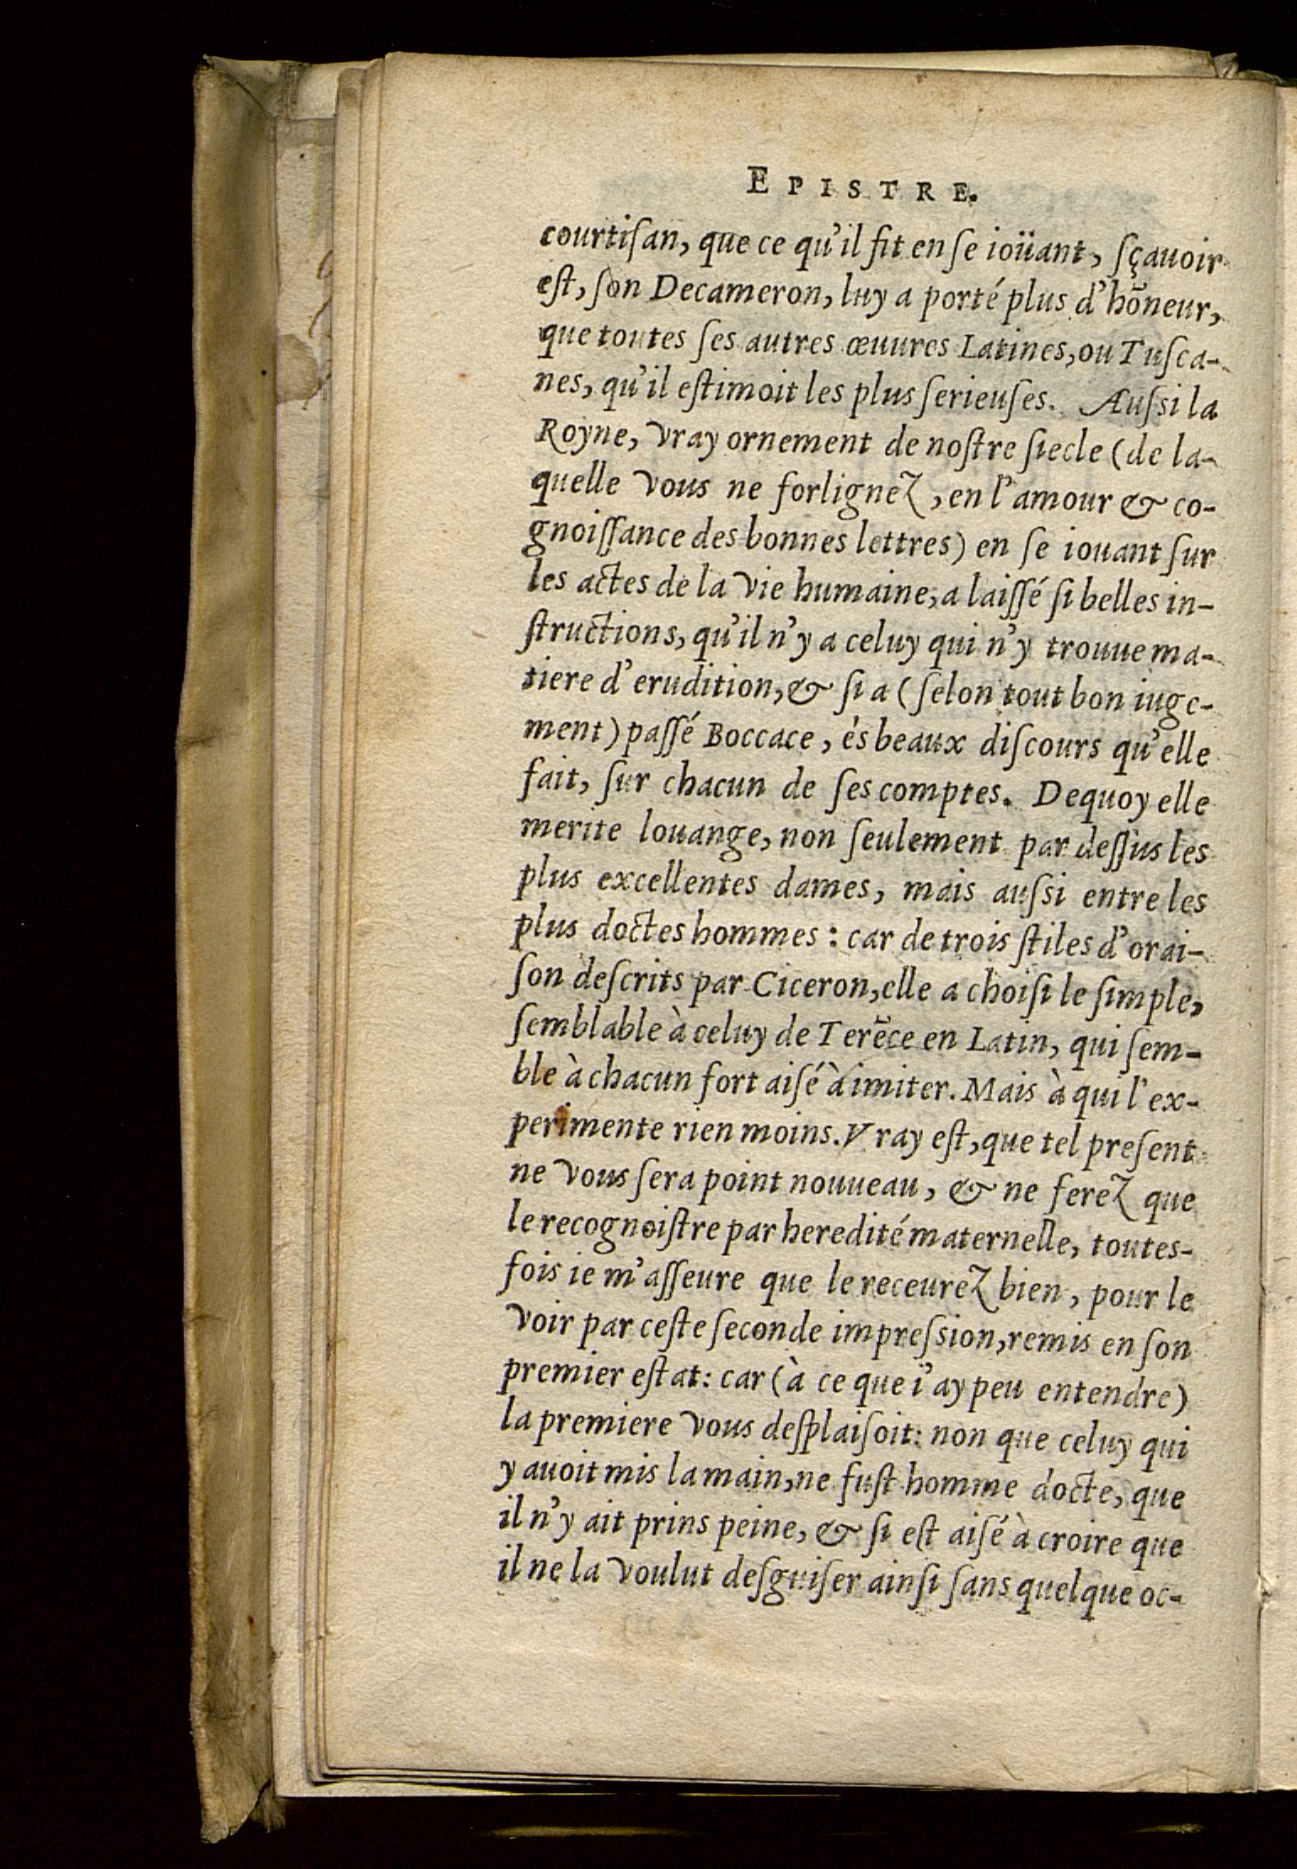 EPISTRE.
courtiſan, que ce qu'il fit en ſe ioüant, ſçauoir
eſt, ſon Decameron, luy a porté plus d'hōneur,
que toutes ſes autres œuures Latines, ou Tuſca-
nes, qu'il eſtimoit les plus ſerieuſes. Auſsi la
Royne, vray ornement de noſtre ſiecle (de la-
quelle vous ne forlignez, en l'amour & co-
gnoiſſance des bonnes lettres) en ſe iouant ſur
les actes de la vie humaine, a laiſſé ſi belles in-
ſtructions, qu'il n'y a celuy qui n'y trouue ma-
tiere d'erudition, & ſi a (ſelon tout bon iuge-
ment) paſſé Boccace, és beaux diſcours qu'elle
fait, ſur chacun de ſes comptes. Dequoy elle
merite louange, non ſeulement par deſſus les
plus excellentes dames, mais auſsi entre les
plus doctes hommes : car de trois ſtiles d'orai-
ſon deſcrits par Ciceron, elle a choiſi le ſimple,
ſemblable à celuy de Terēce en Latin, qui ſem-
ble à chacun fort aiſé à imiter. Mais à qui l'ex-
perimente rien moins. Vray eſt, que tel preſent
ne vous ſera point nouueau, & ne ferez que
le recognoiſtre par heredité maternelle, toutes-
fois ie m'aſſeure que le receurez bien, pour le
voir par ceſte ſeconde impreſsion, remis en ſon
premier eſtat: car (à ce que i'ay peu entendre)
la premiere vous deſplaiſoit: non que celuy qui
y auoit mis la main, ne fuſt homme docte, que
il n'y ait prins peine, & ſi eſt aiſé à croire que
il ne la voulut deſguiſer ainſi ſans quelque oc-